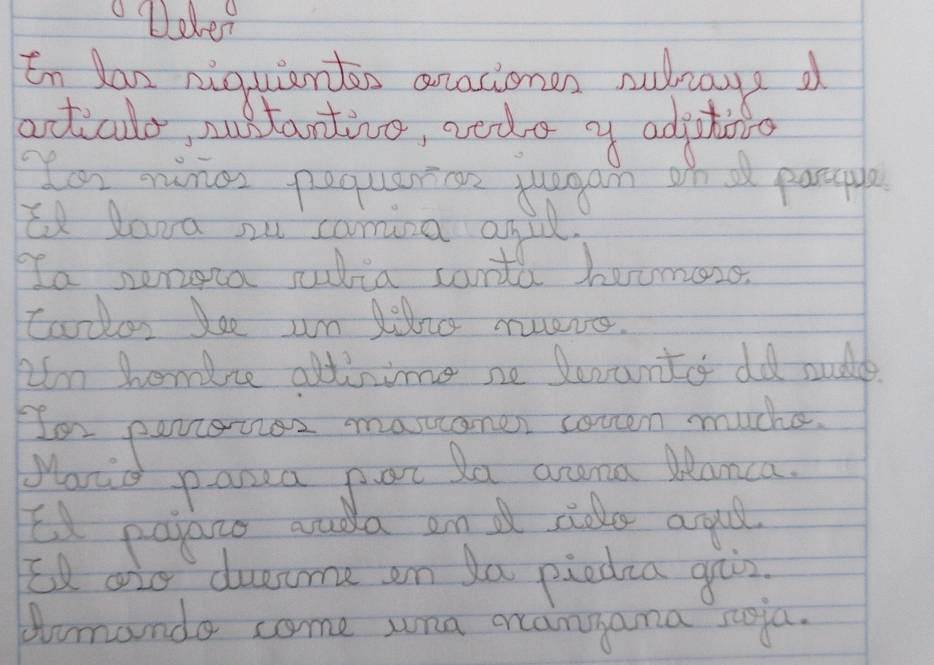 Deber
En las siguientes oraciones subraye el
articulo, sustantivo, verbo y adjetivo
Los niños pequeños juegan en el parque.
El lava su camisa azul.
La senora rubia canta hermoso.
Carlos lee un libro nuevo.
Un hombre altisimo se levantó del suelo.
Los perrorros marrones corren mucho.
Mario pasea por la arena blanca.
El pajaro vuela en el cielo azul.
El oso duerme en la piedra gris.
Armando come una manzana roja.